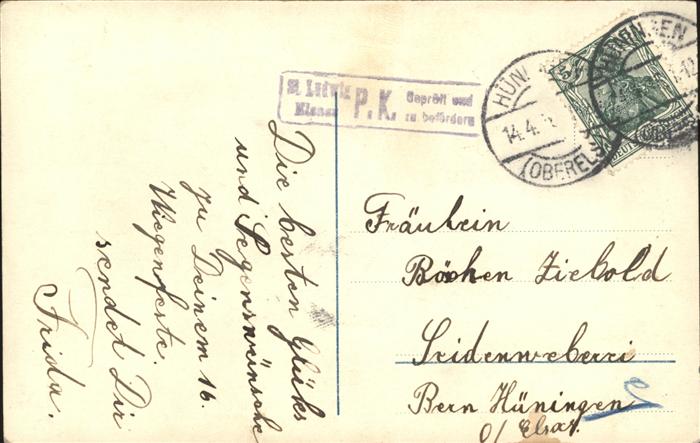 St. Ludwig
Elsass
P. K.
Geprüft und
zu befördern
HÜN
14.4.
(OBERELS
HÜNINGEN
5
Die besten Glücks
und Segenswünsche
zu Deinem 16.
Wiegenfeste
sendet Dir
Frida.
Fräulein
Ziebold
Seidenweberei
Bern Hüningen
o/ Elsas.